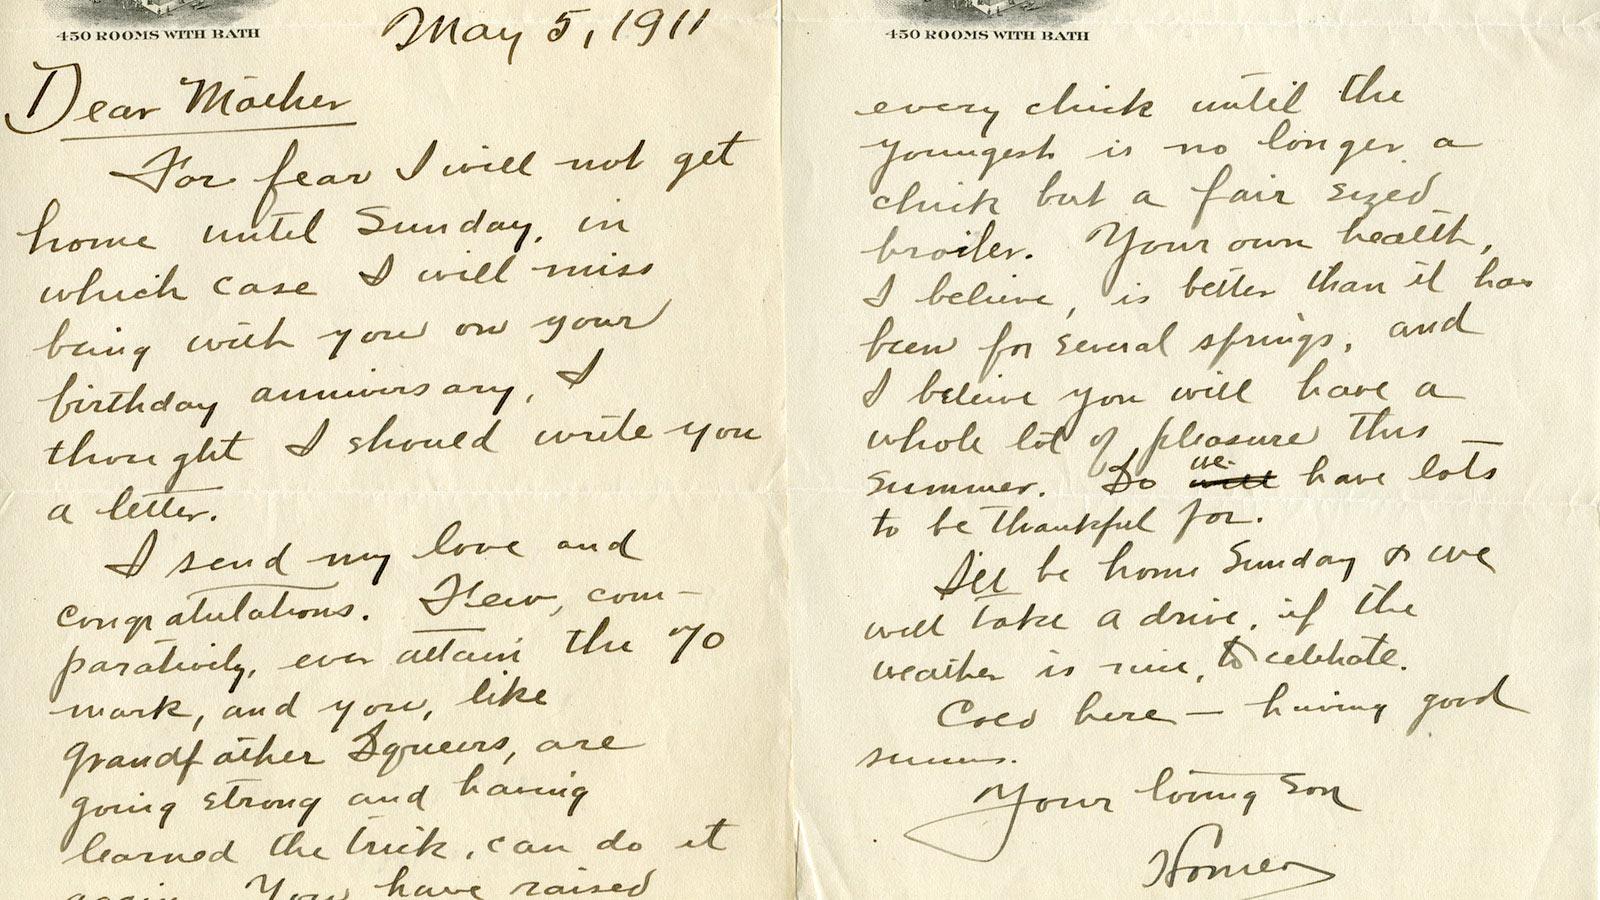 450 ROOMS WITH BATH
May 5, 1911
Dear Mother
For fear I will not get
home until Sunday, in
which case I will miss
being with you on your
birthday anniversary, I
thought I should write you
a letter.
I send my love and
congratulations. Few, com-
paratively, ever attain the 70
mark, and you, like
Grandfather Squiers, are
going strong and having
learned the trick, can do it
again. You have raised
450 ROOMS WITH BATH
every chick until the
youngest is no longer a
chick but a fair sized
broiler. Your own health,
I believe, is better than it has
been for several springs, and
I believe you will have a
whole lot of pleasure this
summer. So we have lots
to be thankful for.
I'll be home Sunday & we
will take a drive, if the
weather is nice, to celebrate.
here — having good
Your loving son
Homer